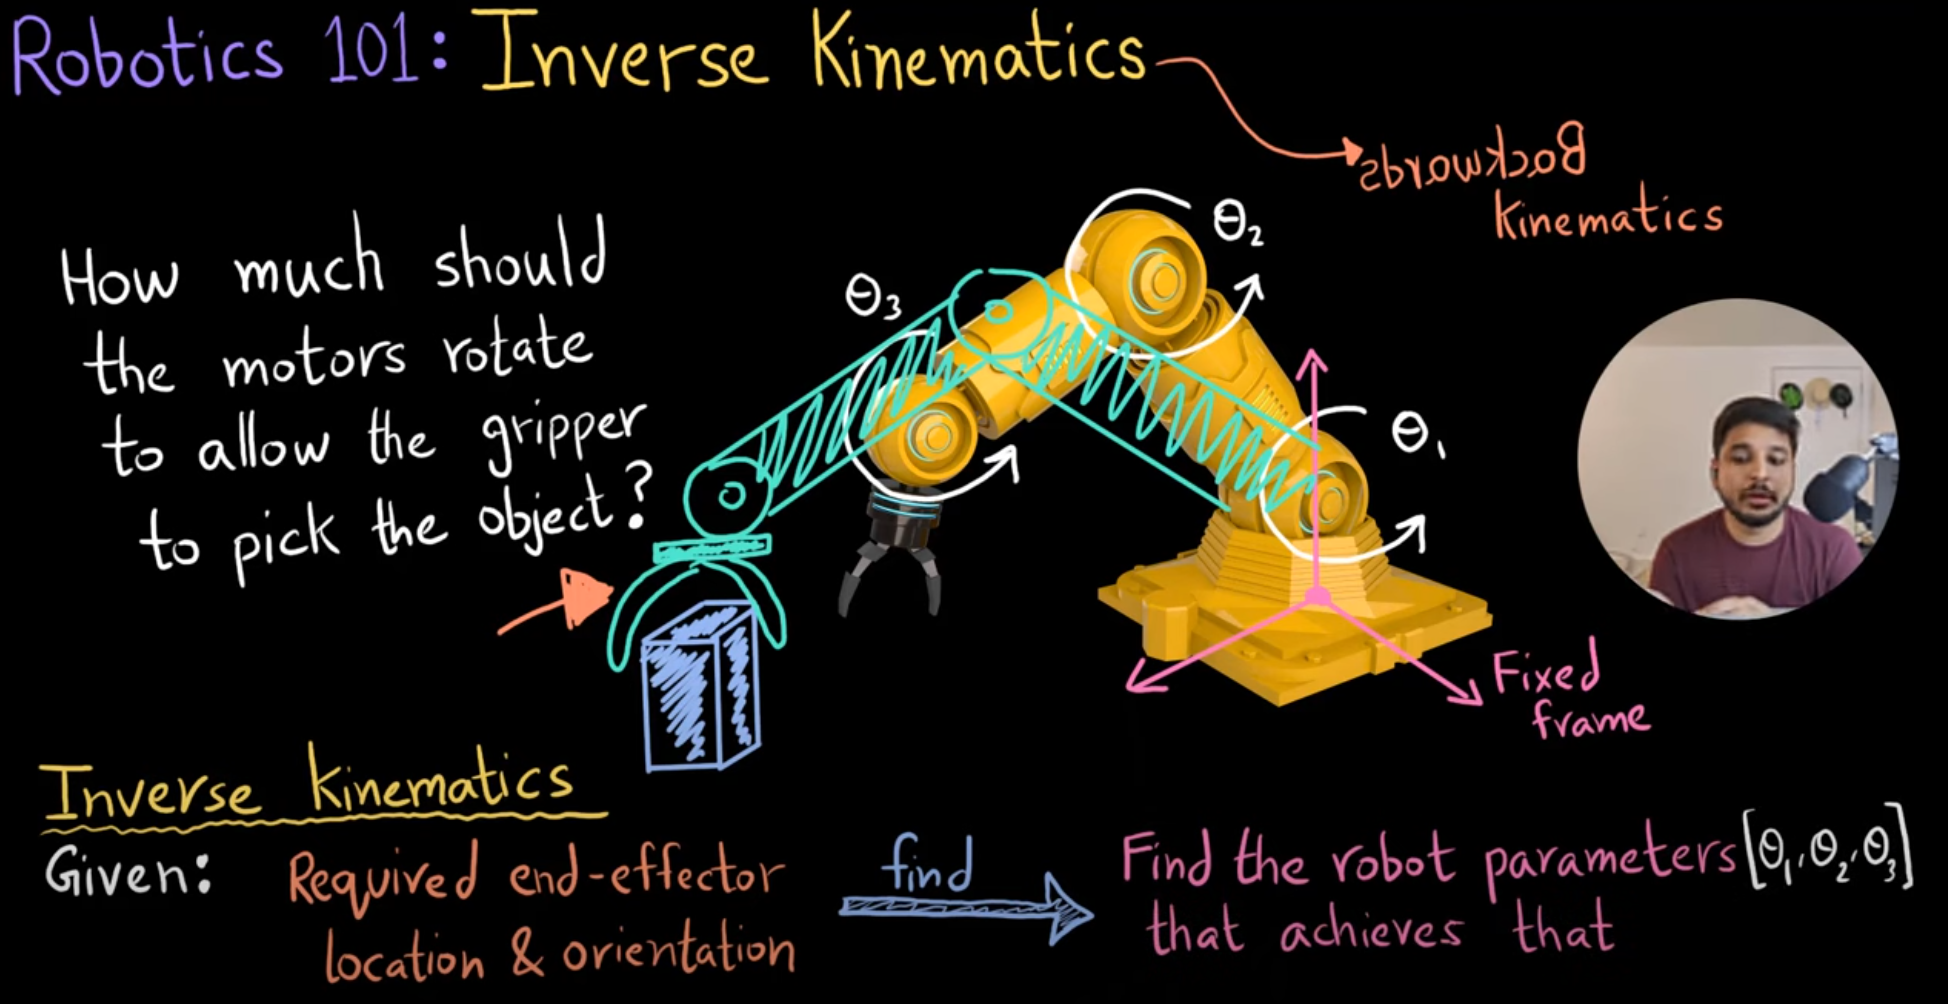 Robotics 101: Inverse Kinematics
Backwards
Kinematics
How much should
the motors rotate
to allow the gripper
to pick the object?
θ₃
θ₂
θ₁
Fixed
frame
Inverse kinematics
Given:
Required end-effector
location & orientation
find
Find the robot parameters [θ₁, θ₂, θ₃]
that achieves that